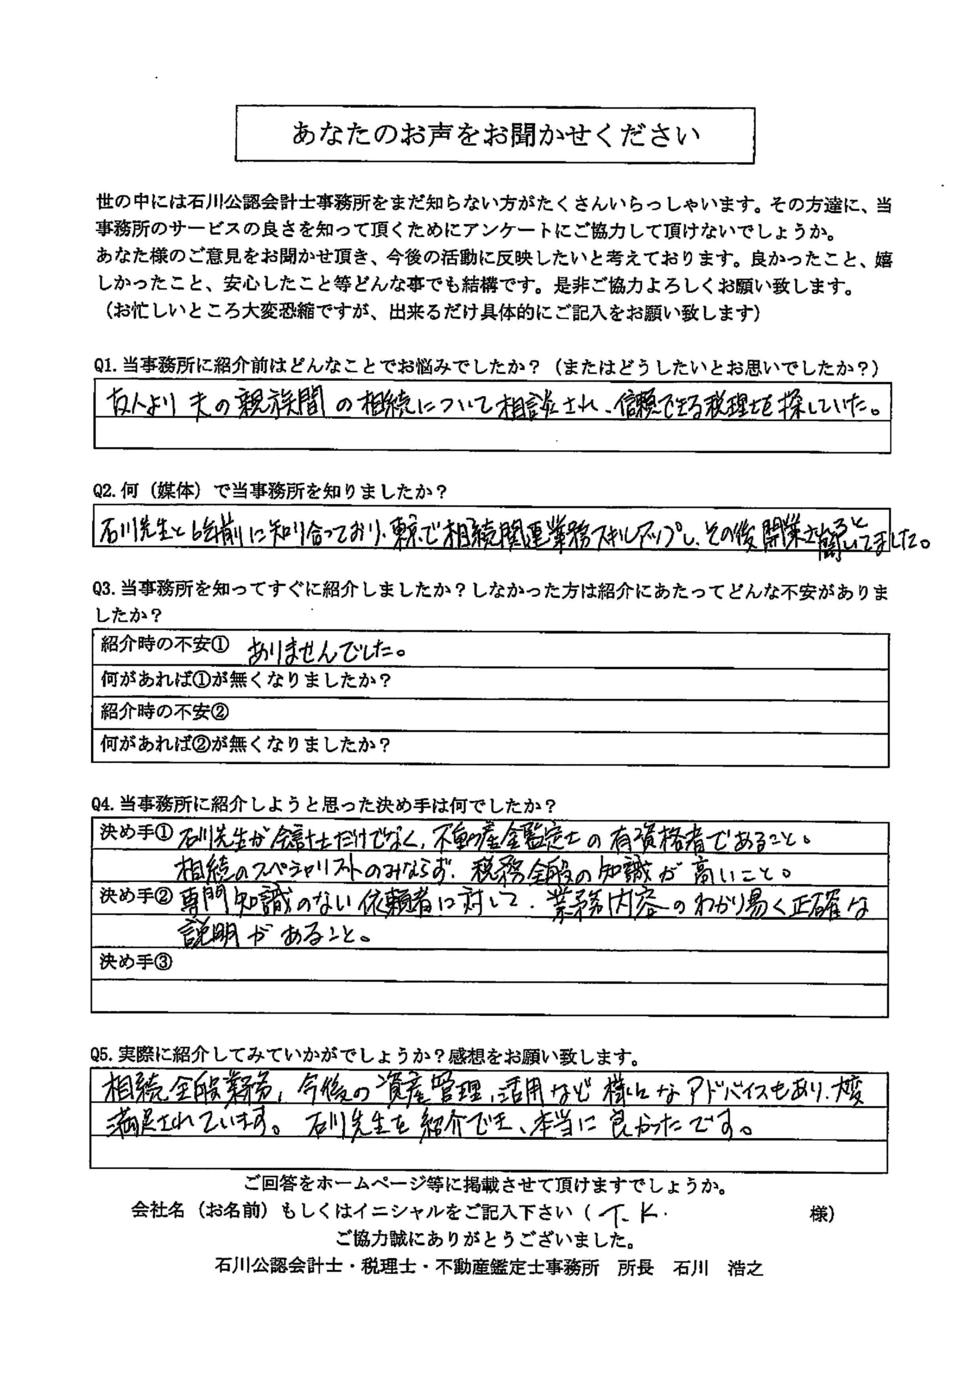 あなたのお声をお聞かせください
世の中には石川公認会計士事務所をまだ知らない方がたくさんいらっしゃいます。その方達に、当
事務所のサービスの良さを知って頂くためにアンケートにご協力して頂けないでしょうか。
あなた様のご意見をお聞かせ頂き、今後の活動に反映したいと考えております。良かったこと、嬉
しかったこと、安心したこと等どんな事でも結構です。是非ご協力よろしくお願い致します。
（お忙しいところ大変恐縮ですが、出来るだけ具体的にご記入をお願い致します）
Q1.当事務所に紹介前はどんなことでお悩みでしたか？（またはどうしたいとお思いでしたか？）
友人より夫の親族間の相続について相談され、信頼できる税理士を探していた。
Q2.何（媒体）で当事務所を知りましたか？
石川先生と6年前に知り合っており、東京で相続関連業務スキルアップし、その後開業されると
聞いてました。
Q3.当事務所を知ってすぐに紹介しましたか？しなかった方は紹介にあたってどんな不安がありま
したか？
紹介時の不安① ありませんでした。
何があれば①が無くなりましたか？
紹介時の不安②
何があれば②が無くなりましたか？
Q4.当事務所に紹介しようと思った決め手は何でしたか？
決め手① 石川先生が会計士だけでなく、不動産鑑定士の有資格者であること。
相続のスペシャリストのみならず、税務全般の知識が高いこと。
決め手② 専門知識のない依頼者に対して、業務内容のわかり易く正確な
説明があること。
決め手③
Q5.実際に紹介してみていかがでしょうか？感想をお願い致します。
相続全般業務、今後の資産管理、活用など様々なアドバイスもあり、大変
満足されています。石川先生を紹介でき、本当に良かったです。
ご回答をホームページ等に掲載させて頂けますでしょうか。
会社名（お名前）もしくはイニシャルをご記入下さい（ T.K. 様）
ご協力誠にありがとうございました。
石川公認会計士・税理士・不動産鑑定士事務所 所長 石川 浩之